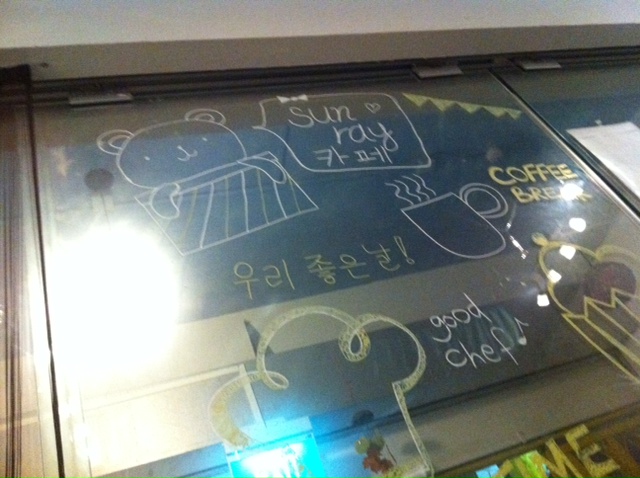 sun
ray
카페
COFFEE
BREAK
우리 좋은날!
good
chef
TIME